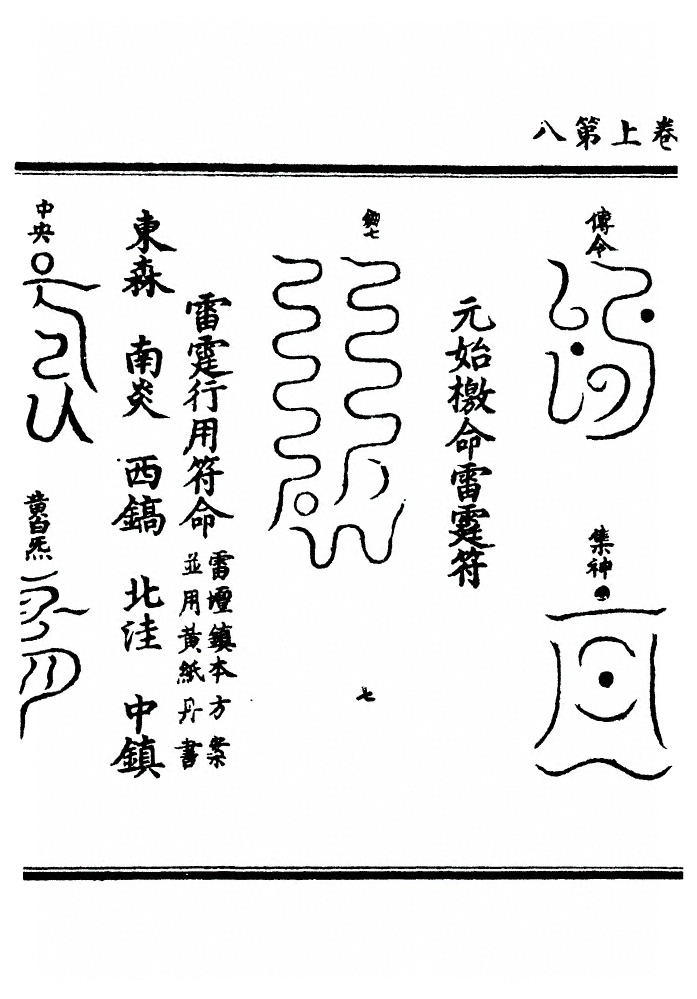 卷上第八
傳令
集神
元始檄命雷霆符
七
雷霆行用符命
雷壇鎮本方案
並用黃紙丹書
東森 南炎 西鎬 北洼 中鎮
中央
黃白炁